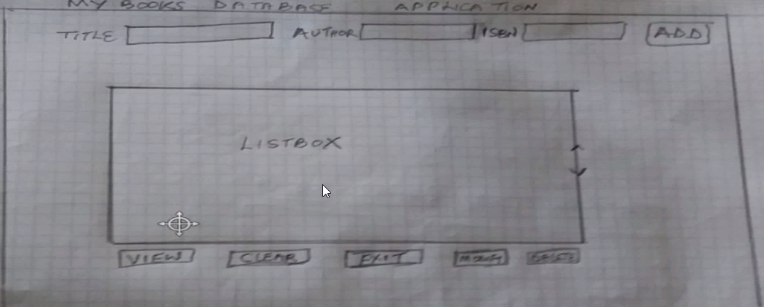 MY BOOKS DATABASE APPLICATION
TITLE AUTHOR ISBN ADD
LISTBOX
VIEW CLEAR EXIT MODIFY DELETE